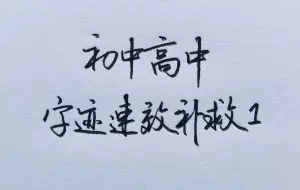 初中高中
字迹速效补救1